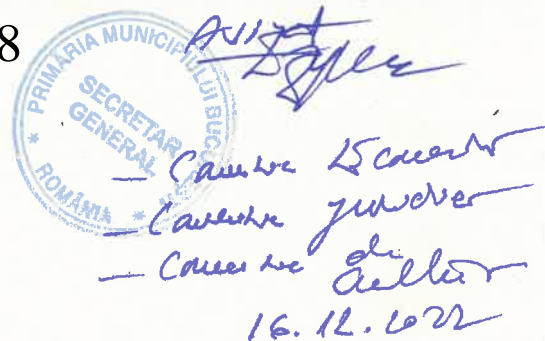 8
PRIMĂRIA MUNICIPIULUI BUC
SECRETAR
GENERAL
ROMÂNIA
Avizat
— Comisia Economică
— Comisia Juridică
— Comisia de
16.12.2022